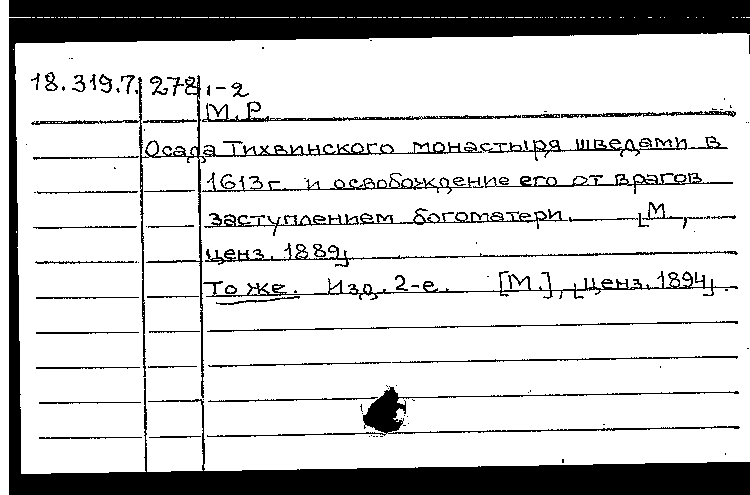 18.319.7.278 1-2
М.Р.
Осада Тихвинского монастыря шведами в
1613г. и освобождение его от врагов
заступлением богоматери. [М.,
ценз. 1889]
То же. Изд. 2-е. [М.], [ценз. 1894].